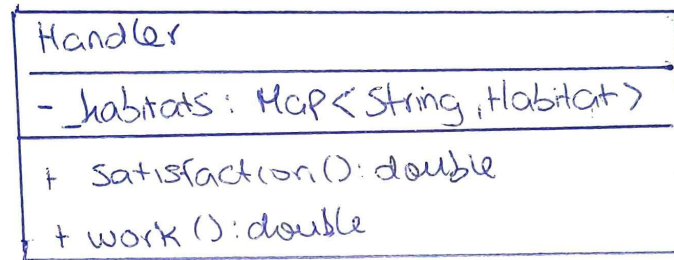 Handler
- _habitats: Map<String, Habitat>
+ satisfaction(): double
+ work(): double